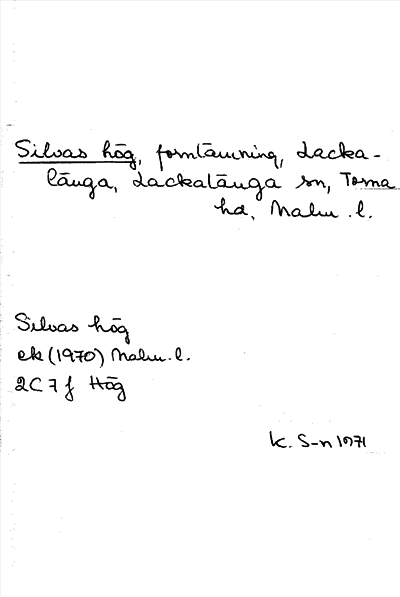 Silvas hög, fornlämning, Lacka-
länga, Lackalänga sn, Torna
hd, Malm. l.
Silvas hög
ek (1970) Malm. l.
2C 7f Hög
K. S-n 1971